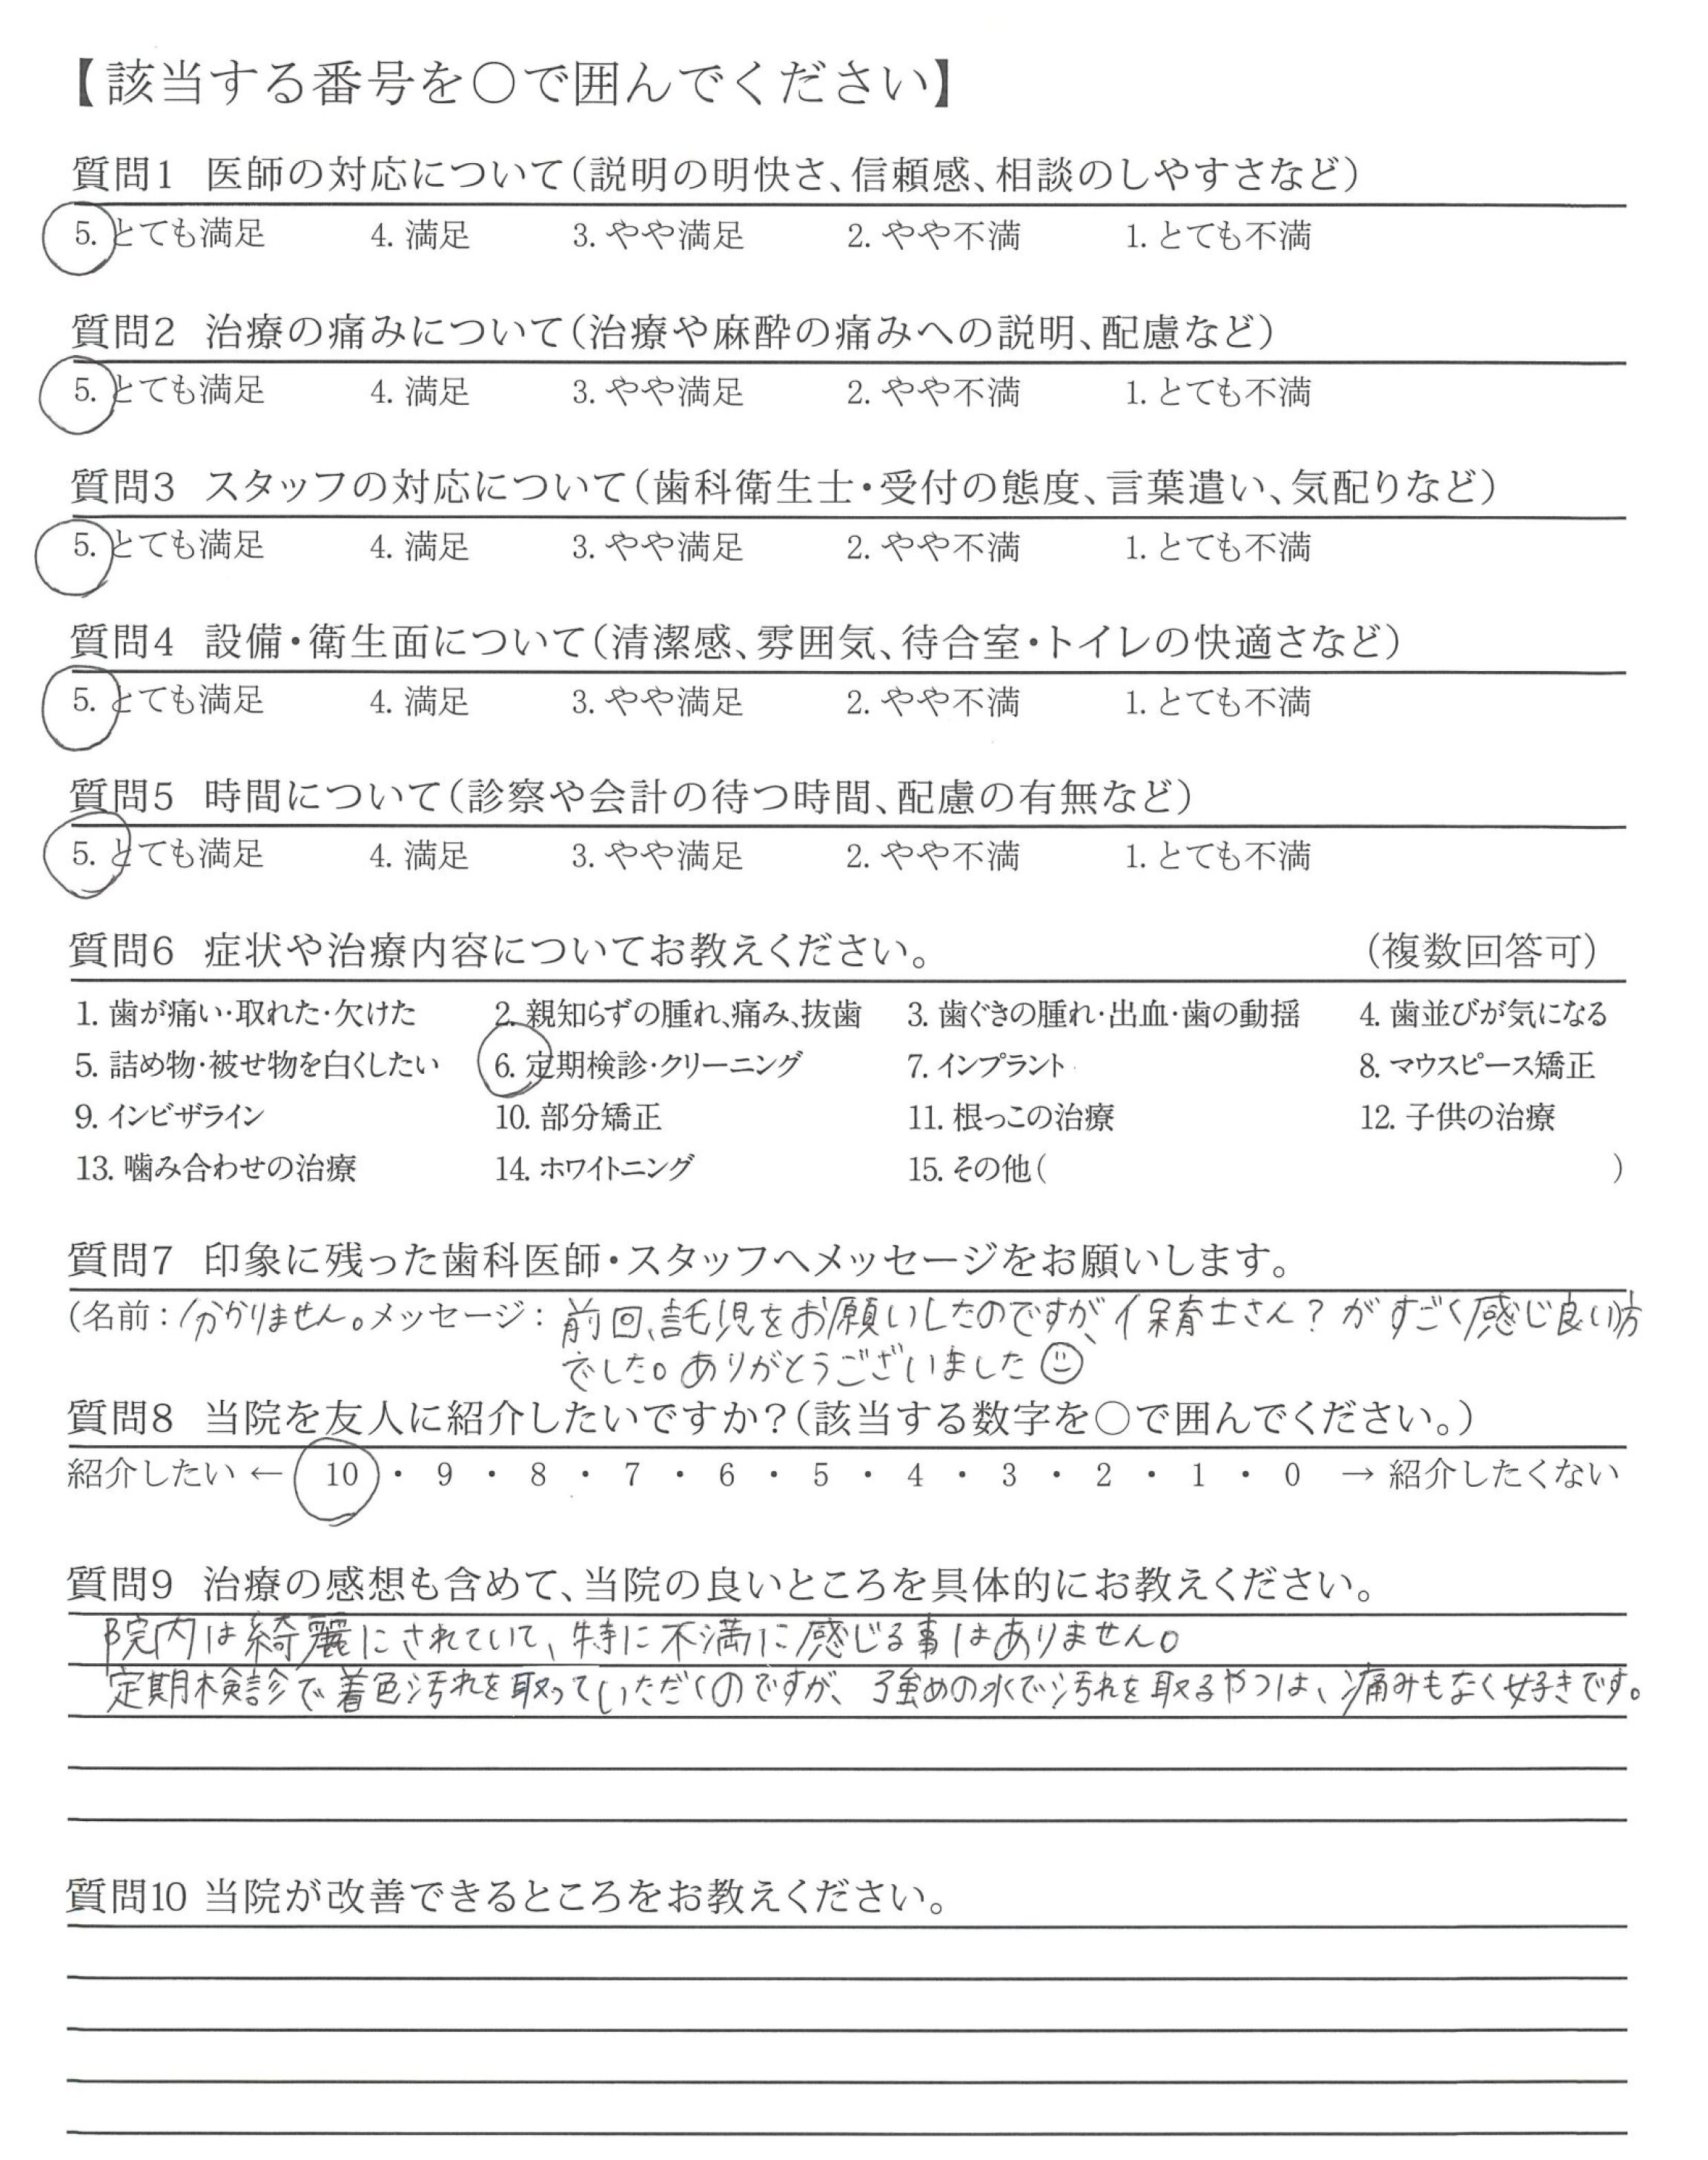 【該当する番号を○で囲んでください】
質問1 医師の対応について(説明の明快さ、信頼感、相談のしやすさなど)
5. とても満足 4. 満足 3. やや満足 2. やや不満 1. とても不満
質問2 治療の痛みについて(治療や麻酔の痛みへの説明、配慮など)
5. とても満足 4. 満足 3. やや満足 2. やや不満 1. とても不満
質問3 スタッフの対応について(歯科衛生士・受付の態度、言葉遣い、気配りなど)
5. とても満足 4. 満足 3. やや満足 2. やや不満 1. とても不満
質問4 設備・衛生面について(清潔感、雰囲気、待合室・トイレの快適さなど)
5. とても満足 4. 満足 3. やや満足 2. やや不満 1. とても不満
質問5 時間について(診察や会計の待つ時間、配慮の有無など)
5. とても満足 4. 満足 3. やや満足 2. やや不満 1. とても不満
質問6 症状や治療内容についてお教えください。 (複数回答可)
1. 歯が痛い・取れた・欠けた 2. 親知らずの腫れ、痛み、抜歯 3. 歯ぐきの腫れ・出血・歯の動揺 4. 歯並びが気になる
5. 詰め物・被せ物を白くしたい 6. 定期検診・クリーニング 7. インプラント 8. マウスピース矯正
9. インビザライン 10. 部分矯正 11. 根っこの治療 12. 子供の治療
13. 噛み合わせの治療 14. ホワイトニング 15. その他( )
質問7 印象に残った歯科医師・スタッフへメッセージをお願いします。
(名前：分かりません。メッセージ：前回、託児をお願いしたのですが、保育士さん？がすごく感じ良い方
でした。ありがとうございました☺
質問8 当院を友人に紹介したいですか？(該当する数字を○で囲んでください。)
紹介したい ← 10 ・ 9 ・ 8 ・ 7 ・ 6 ・ 5 ・ 4 ・ 3 ・ 2 ・ 1 ・ 0 → 紹介したくない
質問9 治療の感想も含めて、当院の良いところを具体的にお教えください。
院内は綺麗にされていて、特に不満に感じる事はありません。
定期検診で着色汚れを取っていただくのですが、強めの水で汚れを取るやつは、痛みもなく好きです。
質問10 当院が改善できるところをお教えください。